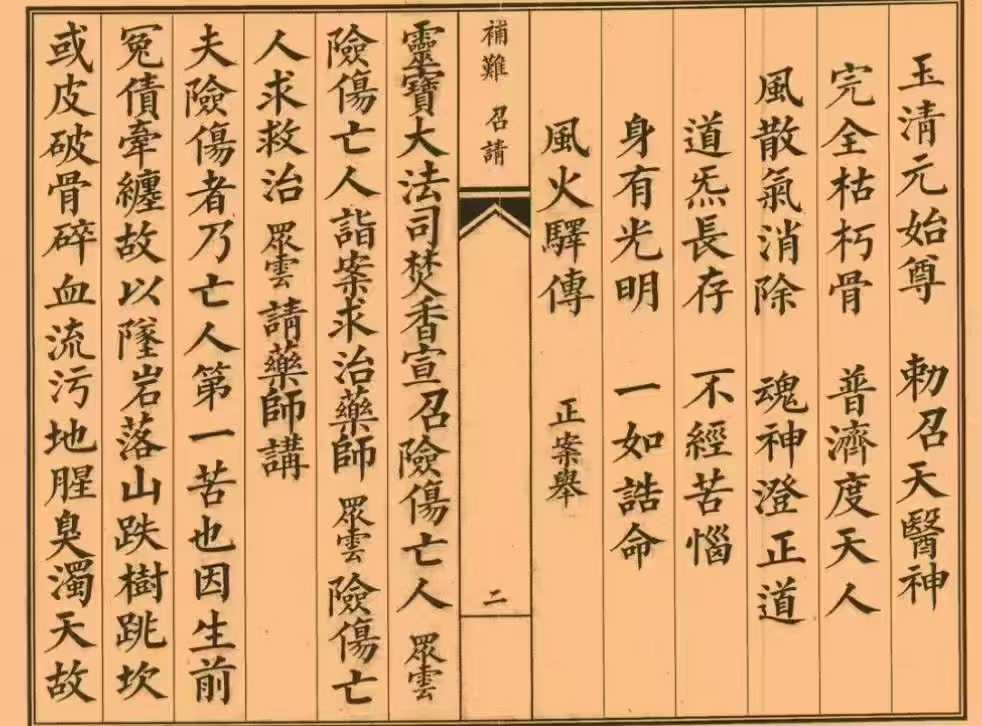 玉清元始尊　勅召天醫神
完全枯朽骨　普濟度天人
風散氣消除　魂神澄正道
道炁長存　不經苦惱
身有光明　一如誥命
風火驛傳　正案舉
補難　召請
二
靈寶大法司焚香宣召險傷亡人　眾雲
險傷亡人詣案求治藥師　眾雲　險傷亡
人求救治　眾雲　請藥師講
夫險傷者乃亡人第一苦也因生前
冤債牽纏故以墜岩落山跌樹跳坎
或皮破骨碎血流污地腥臭濁天故